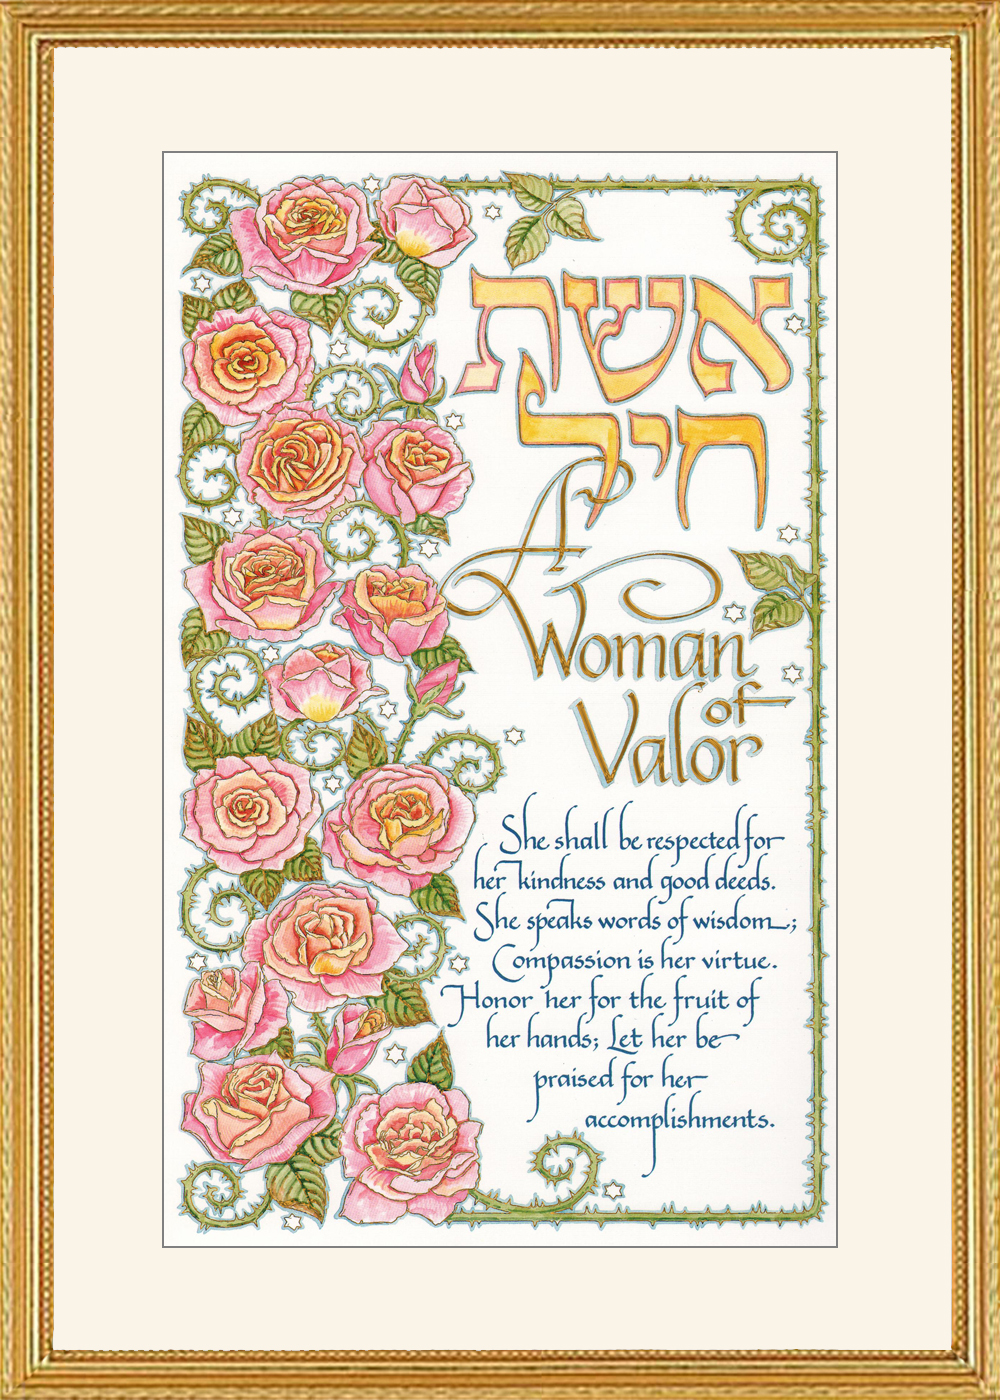 אשת
חיל
A
Woman
of
Valor
She shall be respected for
her kindness and good deeds.
She speaks words of wisdom;
Compassion is her virtue.
Honor her for the fruit of
her hands; Let her be
praised for her
accomplishments.